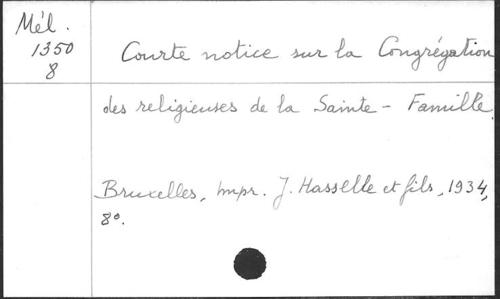 Mél.
1350
8
Courte notice sur la Congrégation
des religieuses de la Sainte-Famille.
Bruxelles, Impr. J. Hasselle et fils, 1934,
8°.